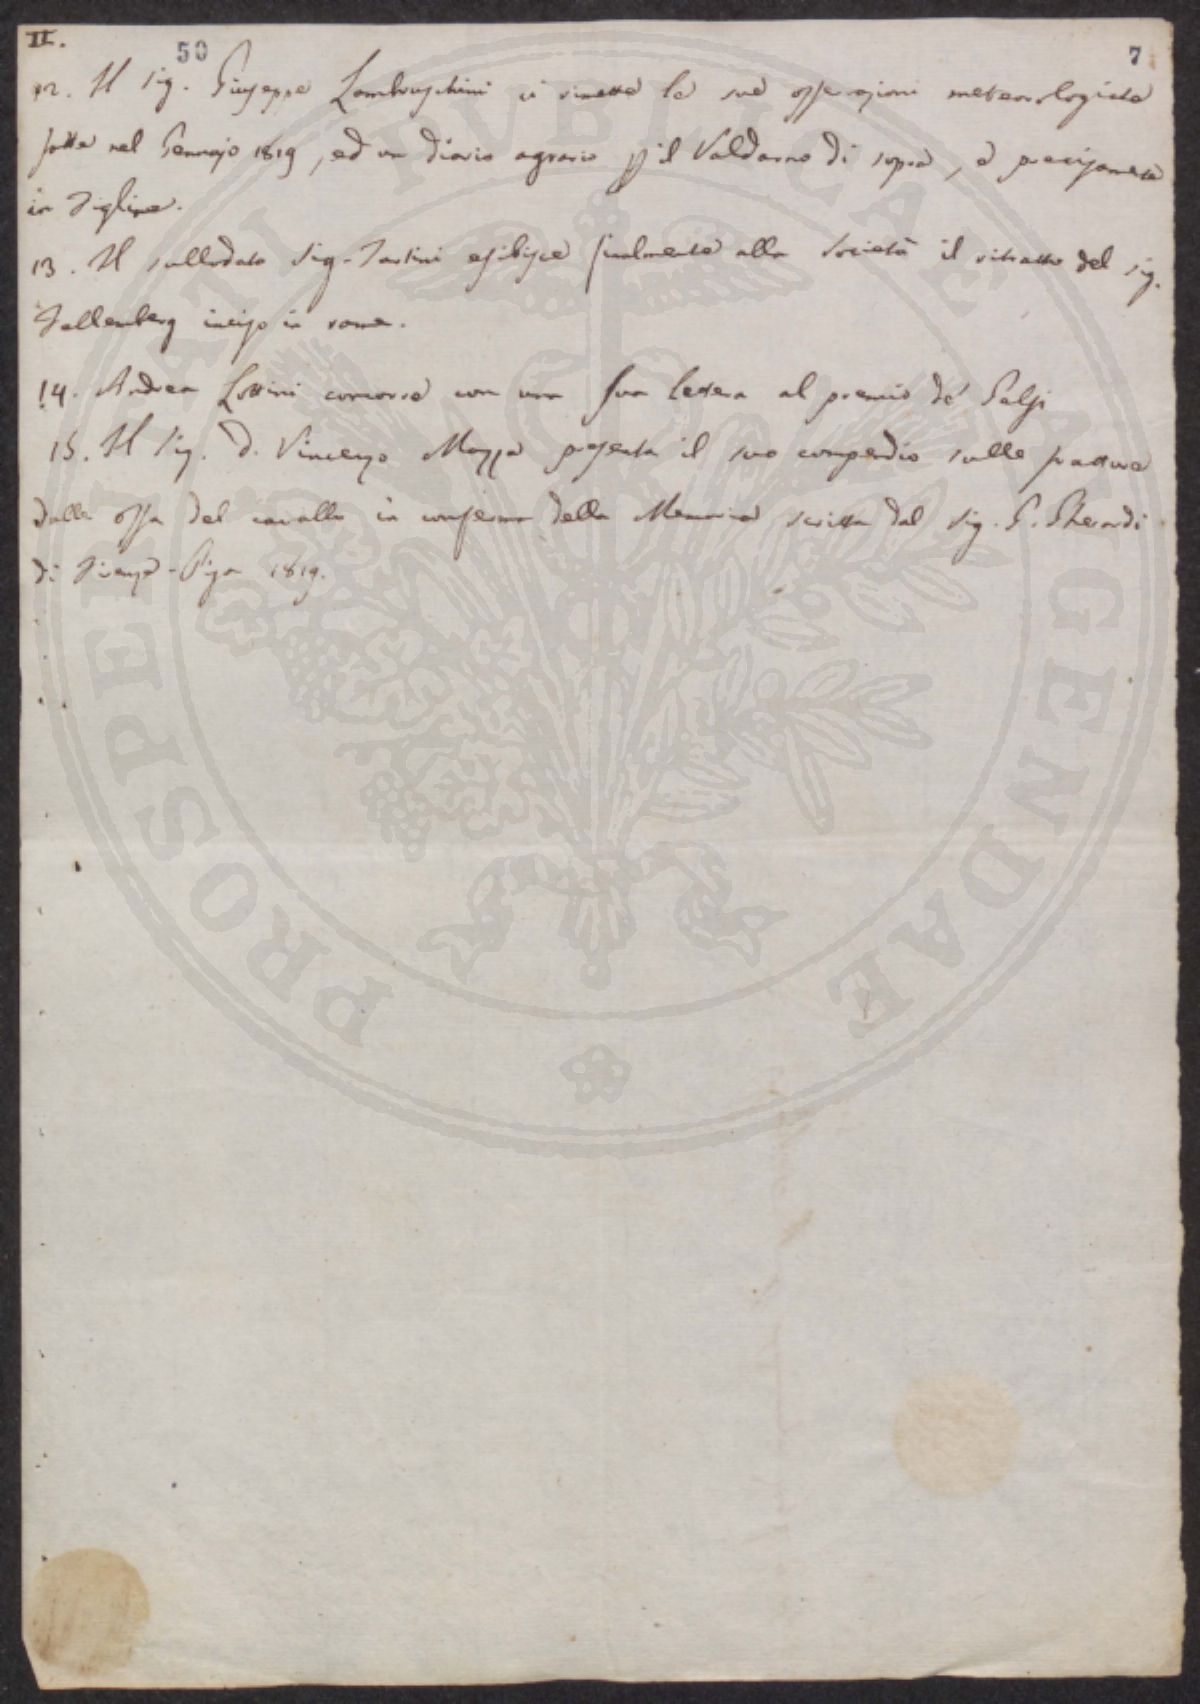 II.
50
7
12. Il Sig. Giuseppe Lambruschini ci rimette le sue osservazioni meteorologiche
fatte nel Gennajo 1819, ed un diario agrario p il Valdarno di sopra, e precisamente
in Figline.
13. Il sullodato Sig. Tartini esibisce finalmente alla Società il ritratto del Sig.
Fellenberg inciso in rame.
14. Andrea Lottini concorre con una sua lettera al premio de' Gelsi
15. Il Sig. D. Vincenzo Mazza presenta il suo compendio sulle fratture
delle ossa del cavallo in conferma della Memoria scritta dal Sig. G. Gherardi
di Firenze - Pisa 1819.
PROSPERITATI PUBLICAE AUGENDAE